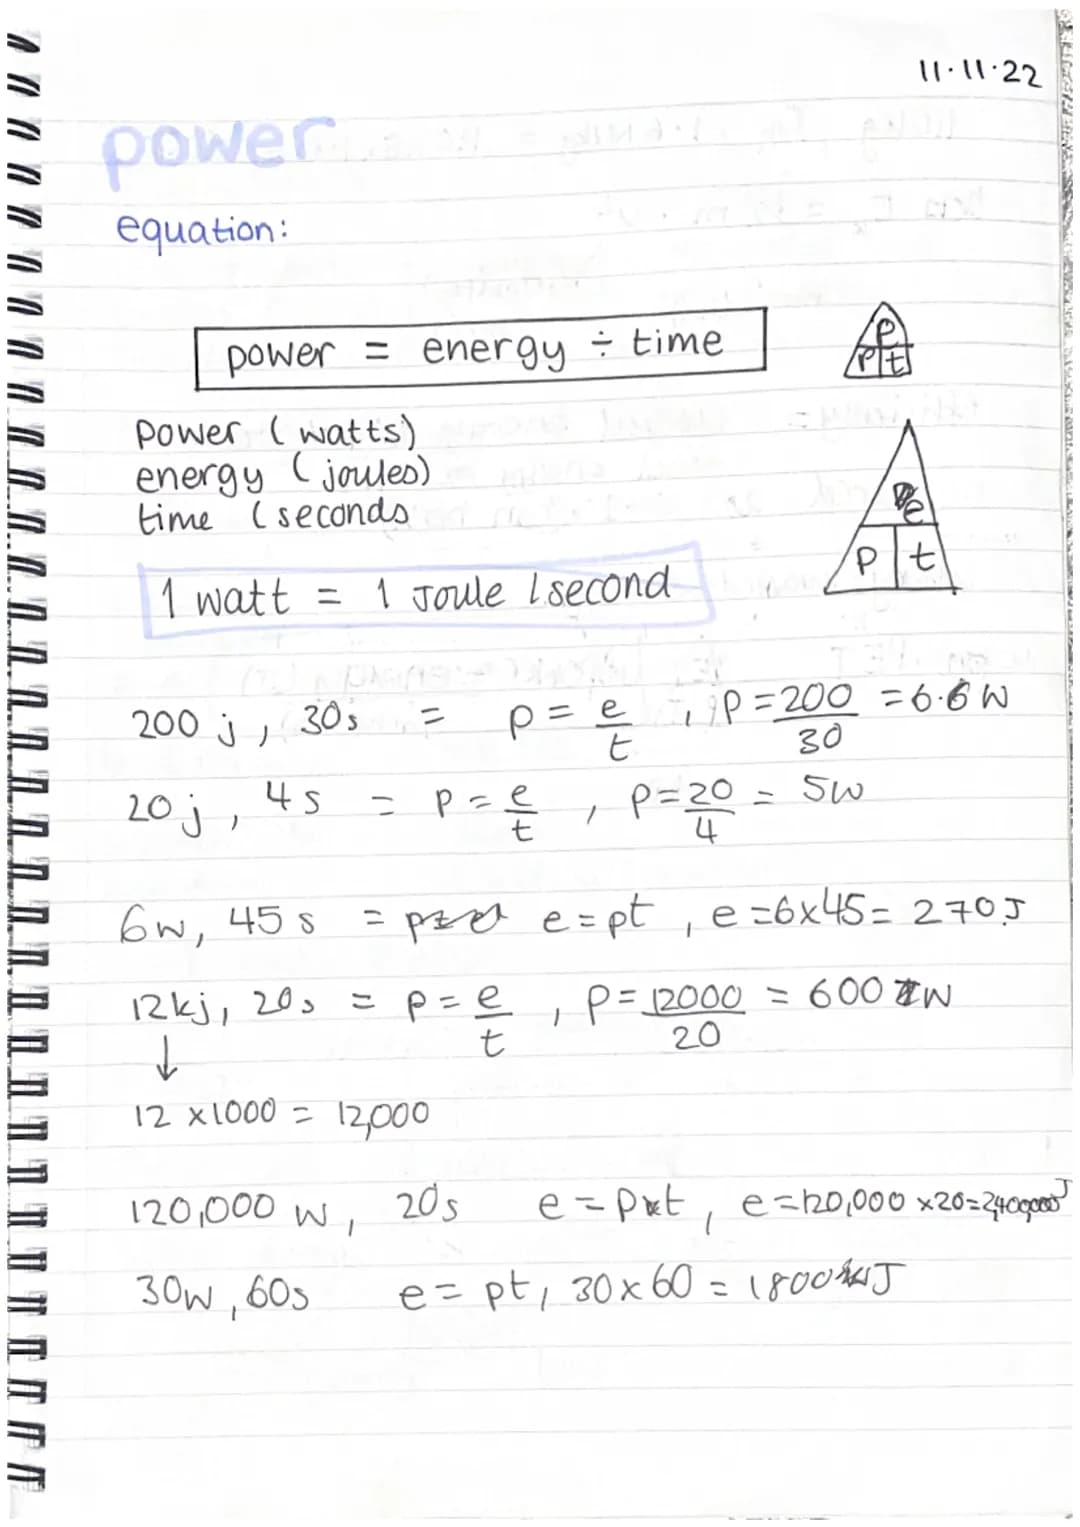 11.11.22
power
equation:
power = energy ÷ time
p
p t
power (watts)
energy (joules)
time (seconds
e
p t
1 watt = 1 Joule / second
200 j, 30s = p = e/t, p = 200/30 = 6.6 W
20 j, 4s = p = e/t, p = 20/4 = 5w
6w, 45 s = e = pt, e = 6x45 = 270J
12kj, 20s = p = e/t, p = 12000/20 = 600 W
↓
12 x1000 = 12,000
120,000 w, 20s e = pxt, e = 120,000 x20 = 2,400,000 J
30w, 60s e = pt, 30x60 = 1800 J